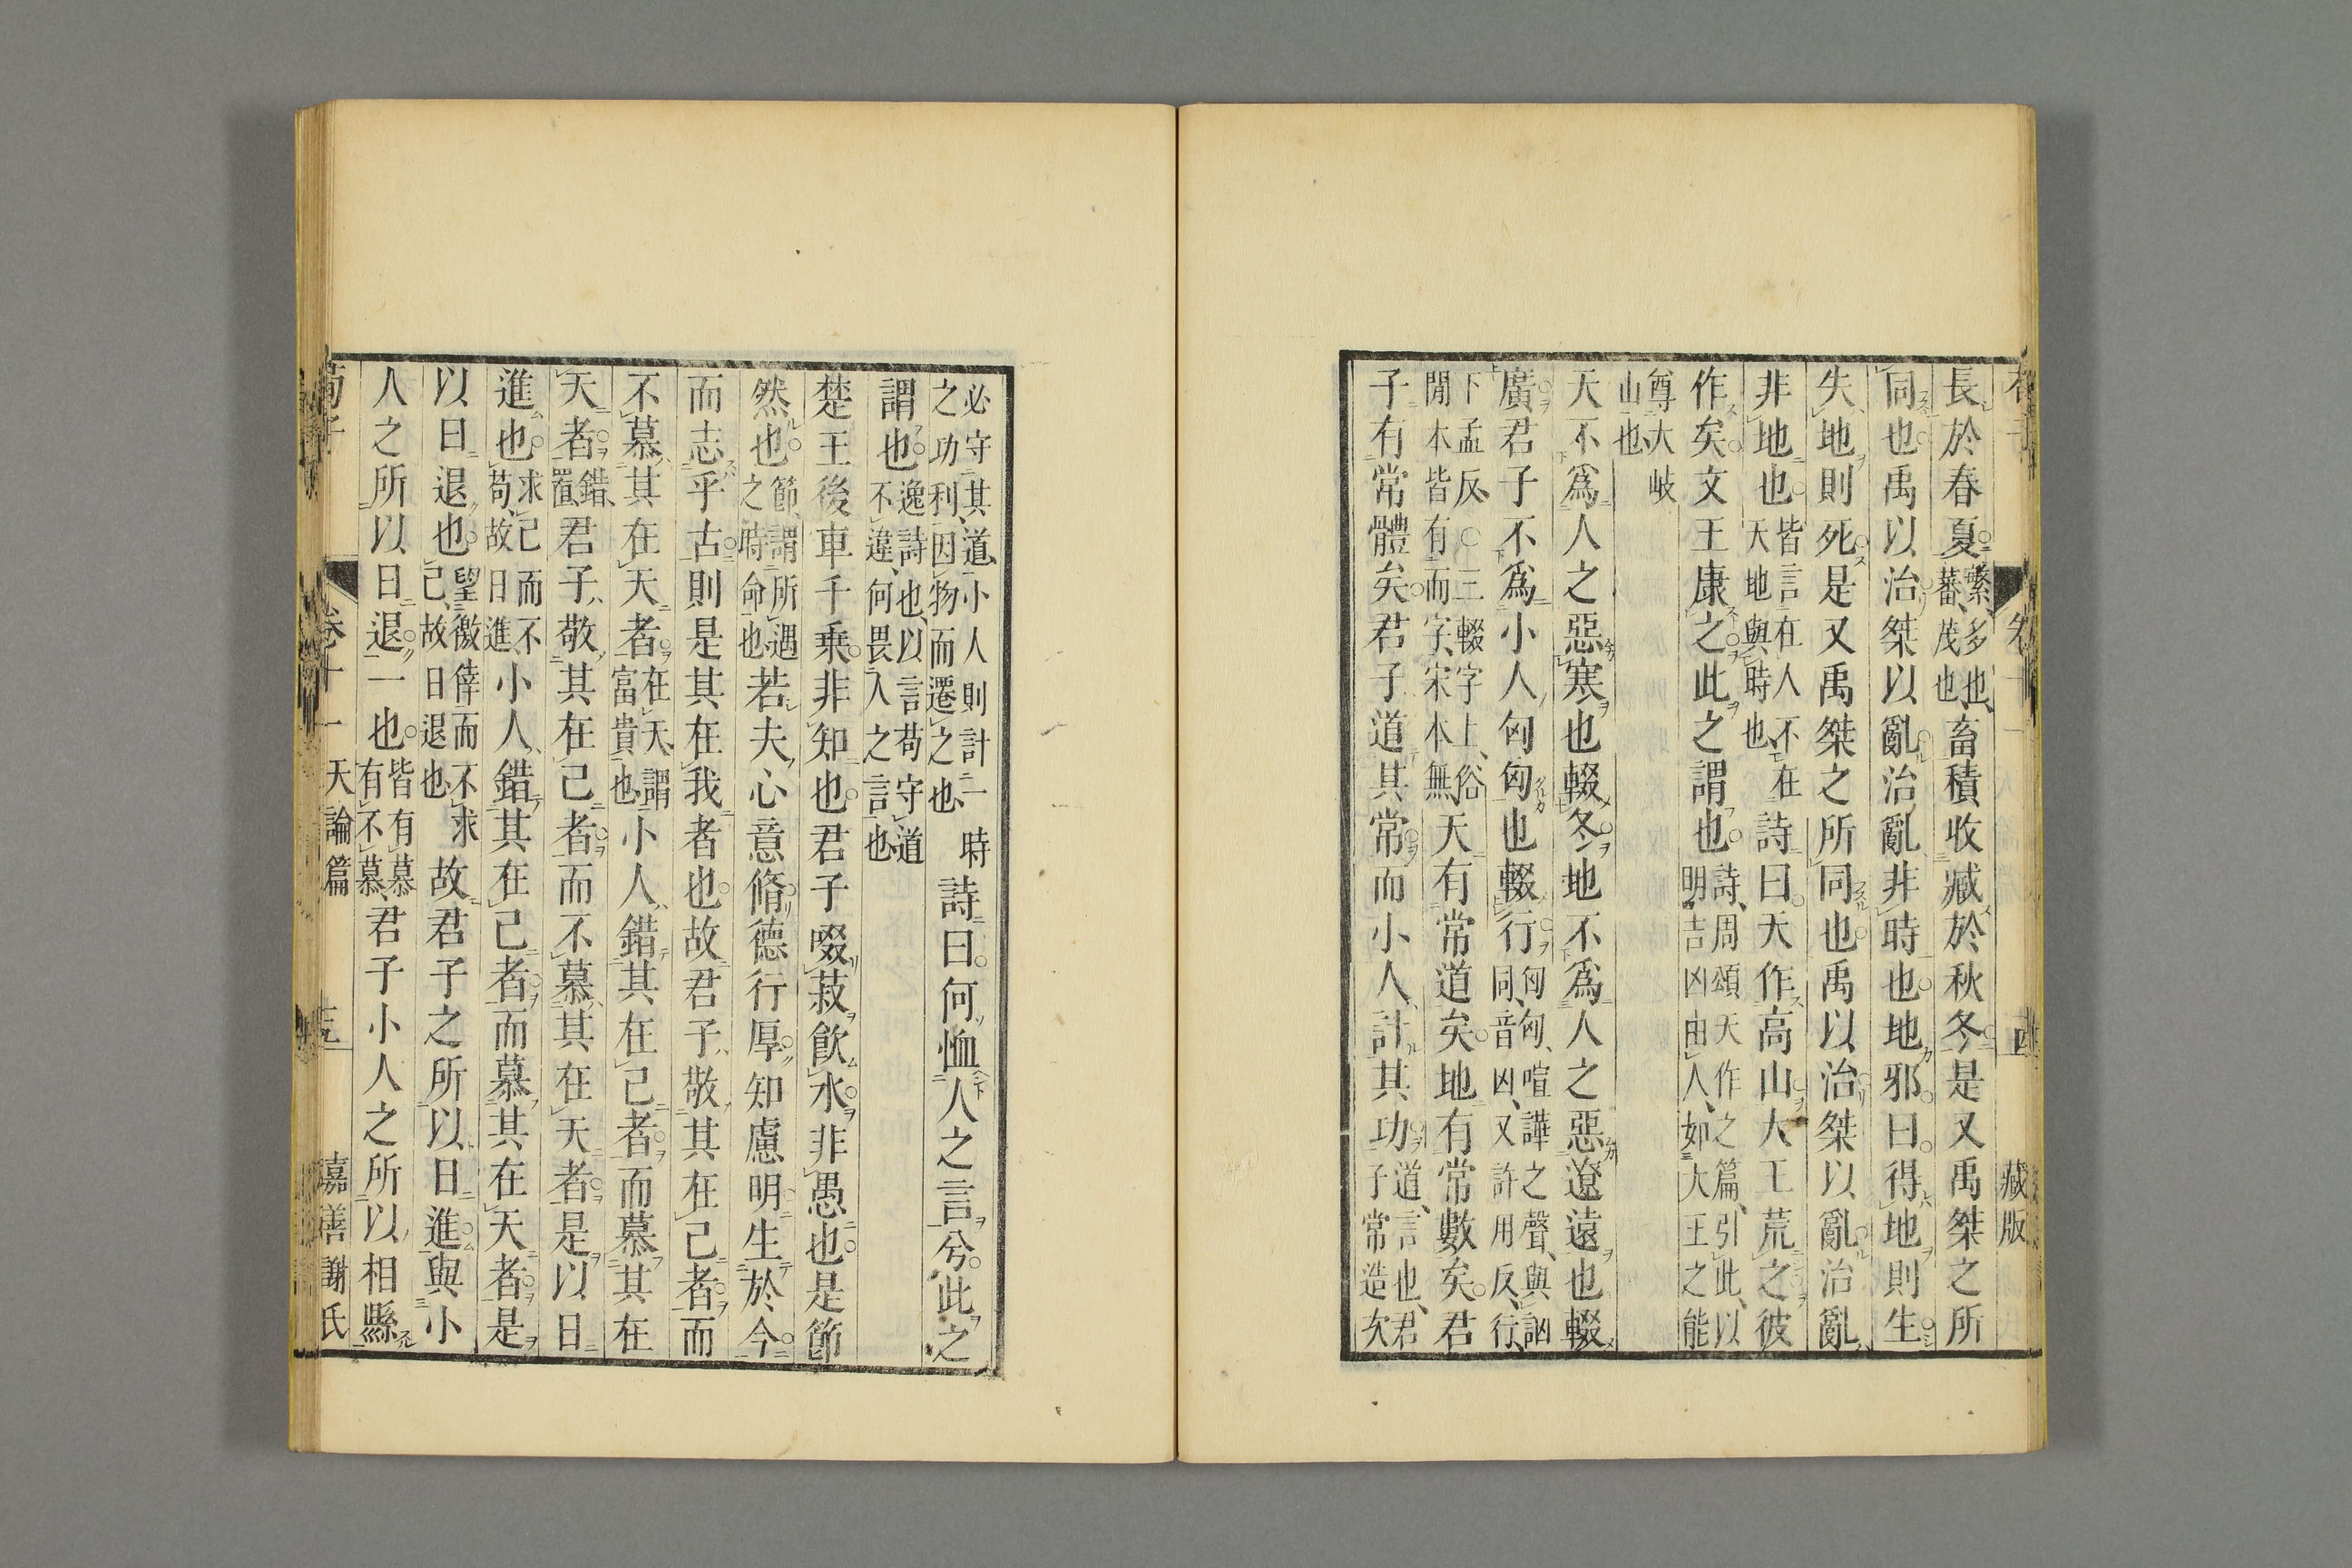 長於春夏繁蕃茂多也也畜積收臧於秋冬是又禹桀之所
同也禹以治桀以亂治亂非時也地邪曰得地則生
失地則死是又禹桀之所同也禹以治桀以亂治亂
非地也皆言在人不在天地與時也詩曰天作高山大王荒之彼
作矣文王康之此之謂也詩周頌天作之篇引此以明吉凶由人如大王之能
尊大岐山也
天不爲人之惡寒也輟冬地不爲人之惡遼遠也輟
廣君子不爲小人匈匈也輟行匈匈喧譁之聲與訩同音凶又許用反行
下孟反○二輟字上俗閒本皆有而字宋本無天有常道矣地有常數矣君
子有常體矣君子道其常而小人計其功道言也君子常造次
藏版
必守其道小人則計一時之功利因物而遷之也詩曰何恤人之言兮此之
謂也逸詩也以言苟守道不違何畏人之言也
楚王後車千乘非知也君子啜菽飲水非愚也是節
然也節謂所遇之時命也若夫心意脩德行厚知慮明生於今
而志乎古則是其在我者也故君子敬其在己者而
不慕其在天者在天謂富貴也小人錯其在己者而慕其在
天者錯置君子敬其在己者而不慕其在天者是以日
進也求己而不苟故日進小人錯其在己者而慕其在天者是
以日退也望徼倖而不求己故日退也故君子之所以日進與小
人之所以日退一也皆有慕有不慕君子小人之所以相縣
荀子 卷十一 天論篇 嘉善謝氏